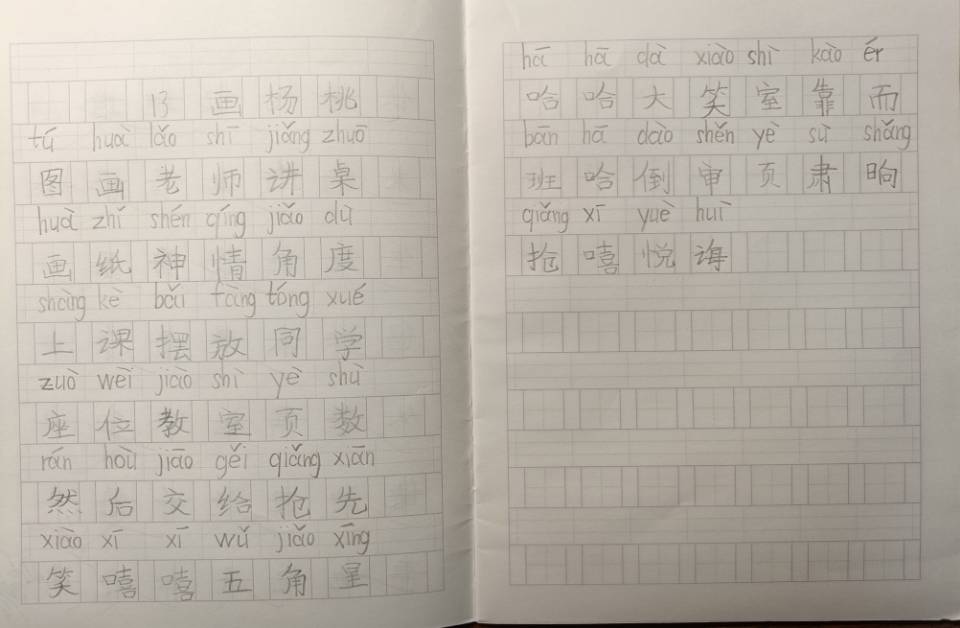 13 画 杨 桃
tú huà lǎo shī jiǎng zhuō
图 画 老 师 讲 桌
huà zhǐ shén qíng jiǎo dù
画 纸 神 情 角 度
shàng kè bǎi fàng tóng xué
上 课 摆 放 同 学
zuò wèi jiào shì yè shù
座 位 教 室 页 数
rán hòu jiāo gěi qiǎng xiān
然 后 交 给 抢 先
xiào xī xī wǔ jiǎo xīng
笑 嘻 嘻 五 角 星
hā hā dà xiào shì kào ér
哈 哈 大 笑 室 靠 而
bān hā dào shěn yè sù shǎng
班 哈 倒 审 页 肃 晌
qiǎng xī yuè huì
抢 嘻 悦 诲